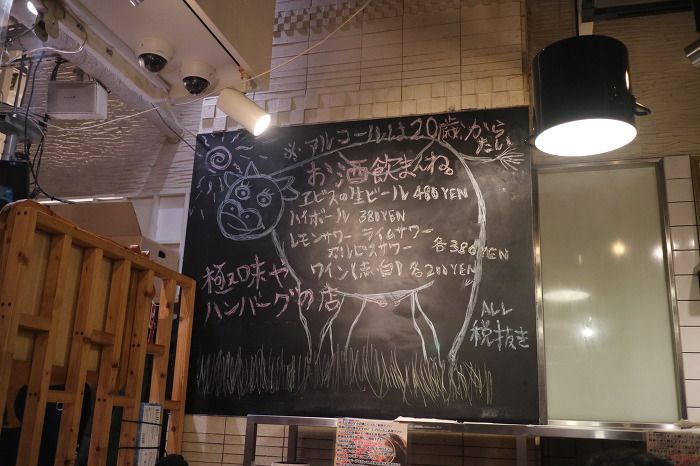 ※アルコールは20歳から
たい
お酒飲まんね。
エビスの生ビール 480YEN
ハイボール 380YEN
レモンサワー ライムサワー
カルピスサワー 各380YEN
ワイン(赤・白) 各200YEN
極味や
ハンバーグの店
ALL
税抜き